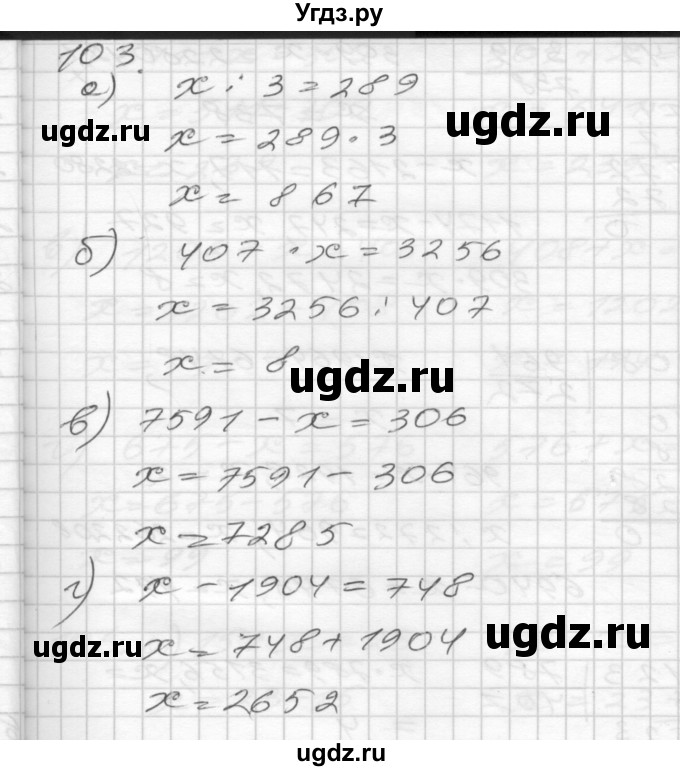 Угдз.ру
103.
а) x : 3 = 289
ugdz.ru
ugdz.ru
x = 289 · 3
x = 867
б) 407 · x = 3256
x = 3256 : 407
x = 8
ugdz.ru
в) 7591 - x = 306
x = 7591 - 306
x = 7285
г) x - 1904 = 748
ugdz.ru
x = 748 + 1904
ugdz.ru
x = 2652
ugdz.ru